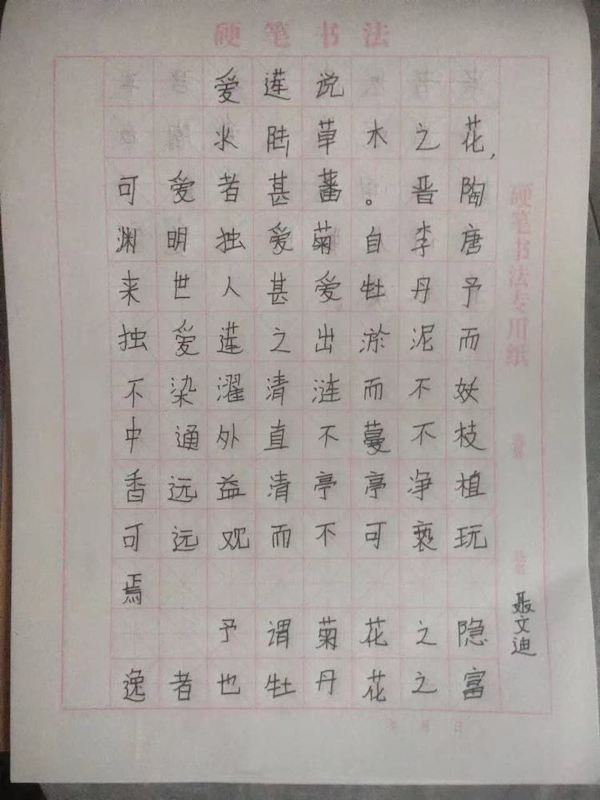 硬笔书法
爱莲说
水陆草木之花,
可爱者甚蕃。晋陶
渊明独爱菊自李唐
来世人甚爱牡丹予
独爱莲之出淤泥而
不染濯清涟而不妖
中通外直不蔓不枝
香远益清亭亭净植
可远观而不可亵玩
焉
予谓菊花之隐
逸者也牡丹花之富
硬笔书法专用纸
聂文迪
年月日